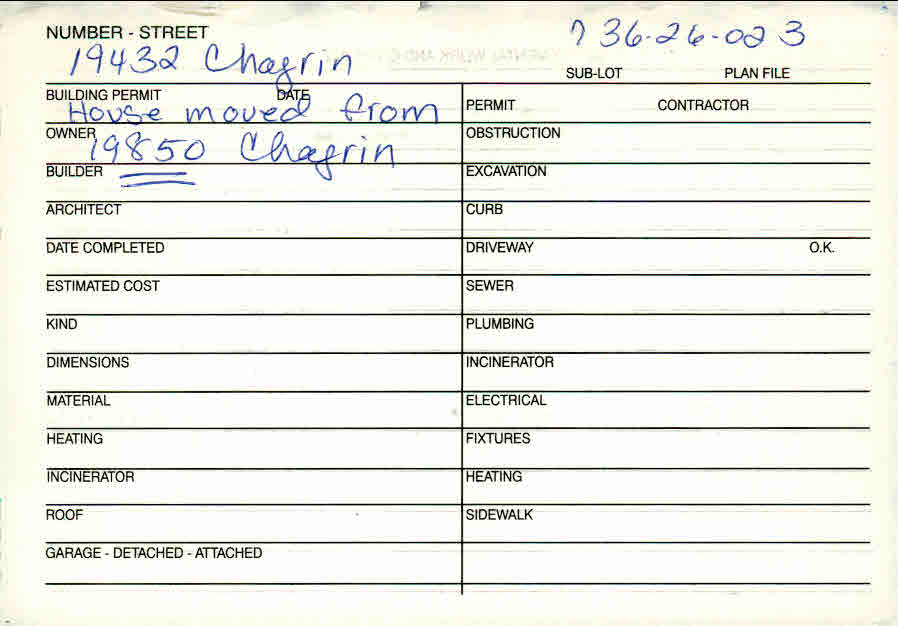 NUMBER - STREET
736-26-023
19432 Chagrin
SUB-LOT PLAN FILE
BUILDING PERMIT DATE
House moved from
PERMIT CONTRACTOR
OWNER
19850 Chagrin
OBSTRUCTION
BUILDER
EXCAVATION
ARCHITECT
CURB
DATE COMPLETED
DRIVEWAY O.K.
ESTIMATED COST
SEWER
KIND
PLUMBING
DIMENSIONS
INCINERATOR
MATERIAL
ELECTRICAL
HEATING
FIXTURES
INCINERATOR
HEATING
ROOF
SIDEWALK
GARAGE - DETACHED - ATTACHED